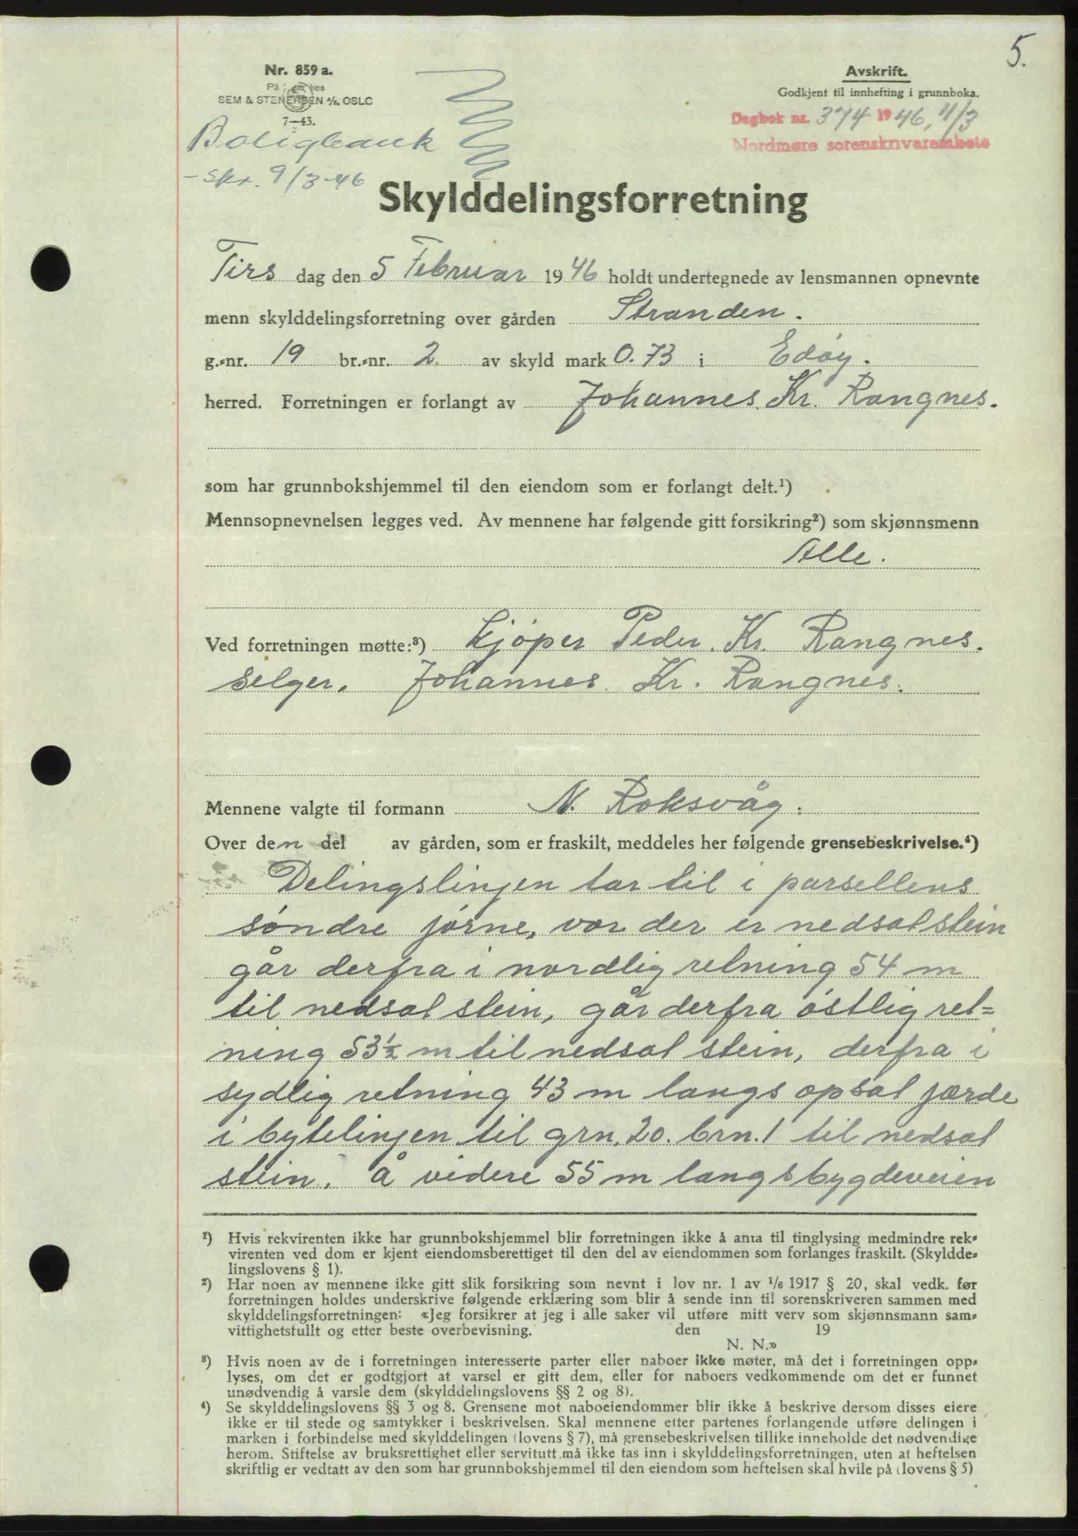 5.
Nr. 859 a.
SEM & STENERSEN A/S. OSLO
7-43.
Avskrift.
Godkjent til innhefting i grunnboka.
Dagbok nr. 374 1946, 11/3
Nordmøre sorenskriverembete
Boligbank
- skr. 9/3-46
Skylddelingsforretning
Tirs dag den 5 Februar 1946 holdt undertegnede av lensmannen opnevnte
menn skylddelingsforretning over gården Stranden.
g.-nr. 19 br.-nr. 2. av skyld mark 0.73 i Edøy.
herred. Forretningen er forlangt av Johannes Kr. Rangnes.
som har grunnbokshjemmel til den eiendom som er forlangt delt.¹)
Mennsopnevnelsen legges ved. Av mennene har følgende gitt forsikring²) som skjønnsmenn
Alle.
Ved forretningen møtte:³) Kjöper Peder. Kr. Rangnes.
selger. Johannes Kr. Rangnes.
Mennene valgte til formann N. Roksvåg.
Over den del av gården, som er fraskilt, meddeles her følgende grensebeskrivelse.⁴)
Delingslinjen tar til i parsellens
söndre jörne, vor der er nedsat stein
går derfra i nordlig retning 54 m
til nedsat stein, går derfra östlig ret=
ning 53½ m til nedsat stein, derfra i
sydlig retning 43 m langs opsat jærde
i bytelinjen til grn. 20. brn. 1 til nedsat
stein. å videre 55 m langs bygdeveien
¹) Hvis rekvirenten ikke har grunnbokshjemmel blir forretningen ikke å anta til tinglysing medmindre rek-
virenten ved dom er kjent eiendomsberettiget til den del av eiendommen som forlanges fraskilt. (Skyldde-
lingslovens § 1).
²) Har noen av mennene ikke gitt slik forsikring som nevnt i lov nr. 1 av 1/6 1917 § 20, skal vedk. før
forretningen holdes underskrive følgende erklæring som blir å sende inn til sorenskriveren sammen med
skylddelingsforretningen: «Jeg forsikrer at jeg i alle saker vil utføre mitt verv som skjønnsmann sam-
vittighetsfullt og etter beste overbevisning. den 19
N. N.»
³) Hvis noen av de i forretningen interesserte parter eller naboer ikke møter, må det i forretningen opp-
lyses, om det er godtgjort at varsel er gitt dem, eller for naboers vedkommende om det er funnet
unødvendig å varsle dem (skylddelingslovens §§ 2 og 8).
⁴) Se skylddelingslovens §§ 3 og 8. Grensene mot naboeiendommer blir ikke å beskrive dersom disses eiere
ikke er til stede og samtykker i beskrivelsen. Skal mennene etter partenes forlangende utføre delingen i
marken i forbindelse med skylddelingen (lovens § 7), må grensebeskrivelsen tillike inneholde det nødvendige
herom. Stiftelse av bruksrettighet eller servitutt må ikke tas inn i skylddelingsforretningen, uten at heftelsen
skriftlig er vedtatt av den som har grunnbokshjemmel til den eiendom som heftelsen skal hvile på (lovens § 5)